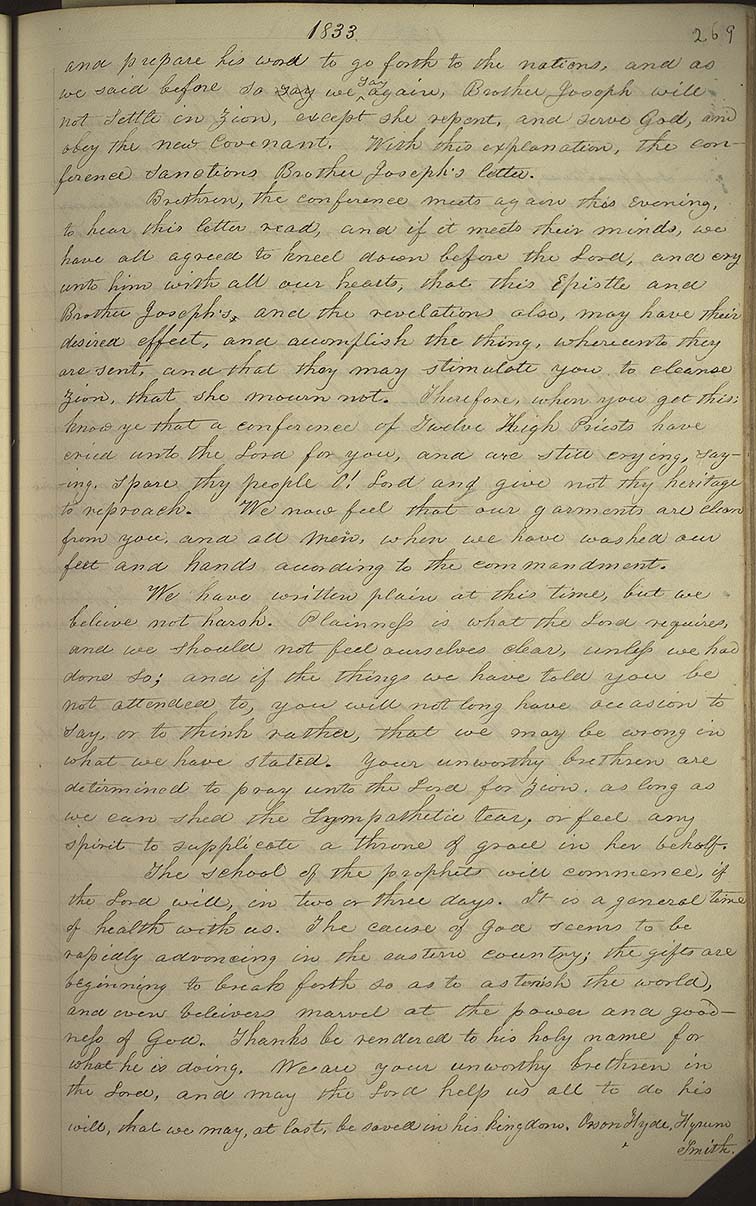 1833.
269
and prepare his word to go forth to the nations, and as
we said before so say we say again, Brother Joseph will
not settle in Zion, except she repent, and serve God, and
obey the new Covenant. With this explanation, the con-
ference sanctions Brother Joseph's letter.
Brethren, the conference meets again this evening,
to hear this letter read, and if it meets their minds, we
have all agreed to kneel down before the Lord, and cry
unto him with all our hearts, that this Epistle and
Brother Joseph's, and the revelations also, may have their
desired effect, and accomplish the thing, whereunto they
are sent, and that they may stimulate you to cleanse
Zion, that she mourn not. Therefore, when you get this;
know ye that a conference of Twelve High Priests have
cried unto the Lord for you, and are still crying, say-
-ing, spare thy people O! Lord and give not thy heritage
to reproach. We now feel that our garments are clean
from you, and all men, when we have washed our
feet and hands according to the commandment.
We have written plain at this time, but we
believe not harsh. Plainness is what the Lord requires,
and we should not feel ourselves clear, unless we had
done so; and if the things we have told you be
not attended to, you will not long have occasion to
say, or to think rather, that we may be wrong in
what we have stated. Your unworthy brethren are
determined to pray unto the Lord for Zion as long as
we can shed the sympathetic tear, or feel any
spirit to supplicate a throne of grace in her behalf.
The school of the prophets will commence, if
the Lord will, in two or three days. It is a general time
of health with us. The cause of God seems to be
rapidly advancing in the eastern country; the gifts are
beginning to break forth so as to astonish the world,
and even believers marvel at the power and good-
ness of God. Thanks be rendered to his holy name for
what he is doing. We are your unworthy brethren in
the Lord, and may the Lord help us all to do his
will, that we may, at last, be saved in his kingdom. Orson Hyde, Hyrum
Smith.